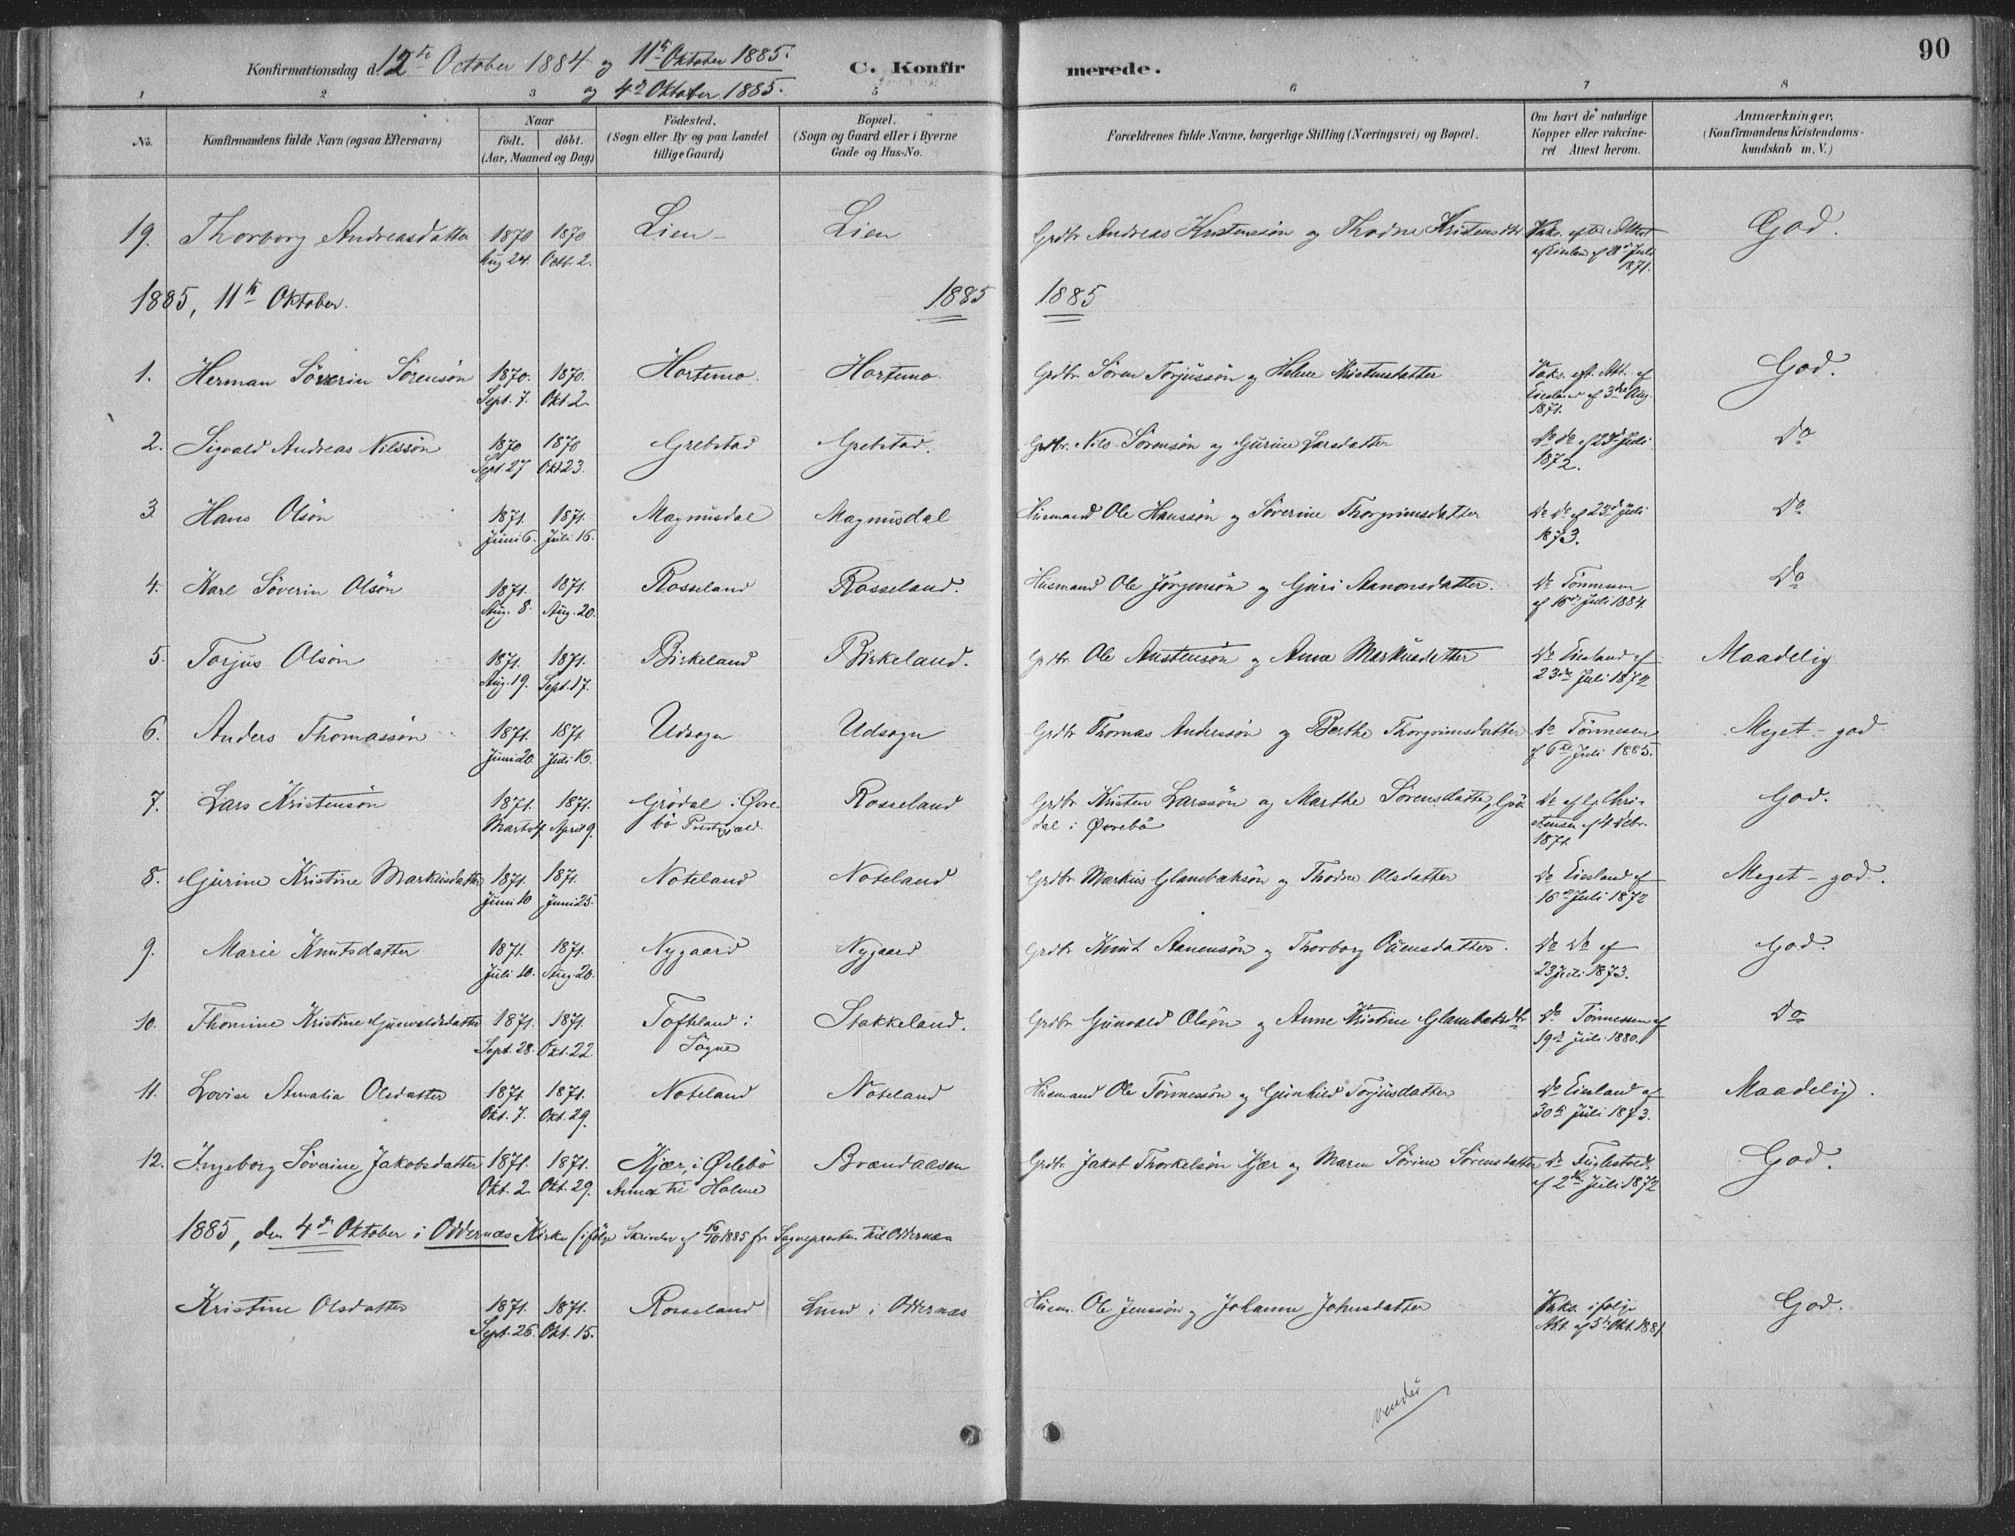 Konfirmationsdag d. 12te October 1884 og 11te Oktober 1885.
og 4de Oktober 1885.
C. Konfirmerede.
90
1 2 3 5 6 7 8
No.
Konfirmandens fulde Navn (ogsaa Efternavn)
Naar
födt. döbt.
(Aar, Maaned og Dag)
Födested.
(Sogn eller By og paa Landet
tillige Gaard)
Bopæl.
(Sogn og Gaard eller i Byerne
Gade og Hus-No.
Forældrenes fulde Navne, borgerlige Stilling (Næringsvei) og Bopæl.
Om havt de naturlige
Kopper eller vakcine-
ret Attest herom.
Anmærkninger,
(Konfirmandens Kristendoms-
kundskab m. V.)
19. Thorborg Andreasdatter 1870 Aug 24. 1870 Octb. 2. Lien Lien Grdbr Andreas Kristensön og Thodne Kristensdtr Vaks. efter Attest af Eiesland af Juli 1871. God.
1885, 11te Oktober. 1885 1885
1. Herman Söverin Sörensön 1870. Sept. 7. 1870. Okt. 2. Hortemo Hortemo Grdbr. Sören Torjussön og Helene Kristensdatter Vaks. eft. Att. af Eiesland af 3die Aug. 1871. God.
2. Sigvald Andreas Nilssön 1870 Sept. 27 1870 Okt 23. Grebstad Grebstad. Grdbr. Nils Sörensön og Gurine Larsdatter Do do af 23d Juli 1872. Do
3. Hans Olsön 1871. Juni 6. 1871. Juli 16. Magnusdal Magnusdal Husmand Ole Hanssön og Söverine Thorgrimsdatter Do do af 23d Juli 1873. Do
4. Karl Söverin Olsön 1871. Aug. 8. 1871. Aug. 20. Rosseland Rosseland. Husmand Ole Jörgensön og Guri Aanonsdatter. Do Tönnesen af 16de Juli 1884. Do
5. Torjus Olsön 1871. Aug. 19. 1871. Sept. 17. Birkeland Birkeland. Grdbr. Ole Austensön og Anne Markusdatter Do Eiesland af 23de Juli 1872 Maadelig
6. Anders Thomassön 1871. Juni 20. 1871 Juli 16. Udsogn Udsogn Grdbr Thomas Andersön og Berthe Thorgrimsdatter Do Tönnesen af 6te Juli 1885. Meget god
7. Lars Kristensön 1871. Marts 4 1871. April 9. Grödal i Øvre-
bö Præstegjæld. Rosseland Grdbr Kristen Larssön og Marthe Sörensdatter, Grö-
dal i Øvrebö Do af G. Chri-
stensen af 4 Debr. 1871. God.
8. Gurine Kristine Markusdatter 1871. Juni 10 1871. Juni 25. Noteland Noteland Grdbr Markus Glambæksön og Thodne Olsdatter Do Eiesland af 16de Juli 1872 Meget god.
9. Marie Knutsdatter 1871. Juli 10. 1871. Aug 20. Nygaard Nygaard Grdbr Knut Aanensön og Thorborg Olsdatter. Do Do af 23 Juli 1873. God.
10. Thomine Kristine Gunvaldsdatter 1871. Sept. 28. 1871. Okt. 22 Tofteland i
Sögne Stokkeland. Grdbr Gunvald Olsön og Anne Kristine Glambæksdtr Do Tönnessen af 19de Juli 1880. Do
11. Lovise Amalia Olsdatter 1871 Okt. 7. 1871. Okt. 29. Noteland Noteland Husmand Ole Tönnessön og Gunhild Torjusdatter Do Eiesland af 30te Juli 1873. Maadelig.
12. Ingeborg Söverine Jakobsdatter 1871. Okt. 2 1871. Okt. 29. Kjær, i Øslebö
Annex til Holme Brændaasen Grdbr Jakob Thorkelsön Kjær og Maren Sörine Sörensdatter Do Fuglestvedt. af 2den Juli 1872 God.
1885, den 4de Oktober i Oddernæs Kirke (ifölge Skrivelse af 16/10 1885 fr Sognepresten til Oddernæs
Kristine Olsdatter 1871. Sept. 26. 1871. Okt. 15. Rosseland Lund i Oddernæs Husm. Ole Jenssön og Johanne Johnsdatter Vaks. ifölge Att. af 5te Okt. 1881 God.
vendes